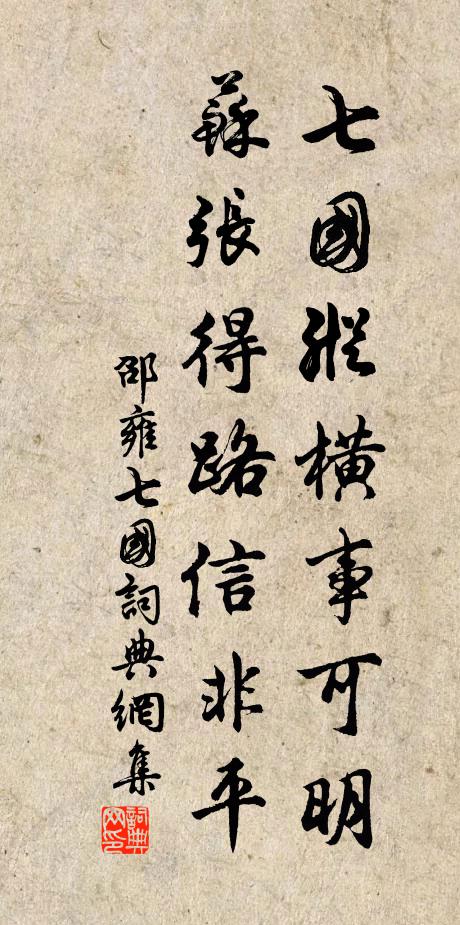 七國縱橫事可明
蘇張得路信非平
邵雍七國詞典網集
詞典網印